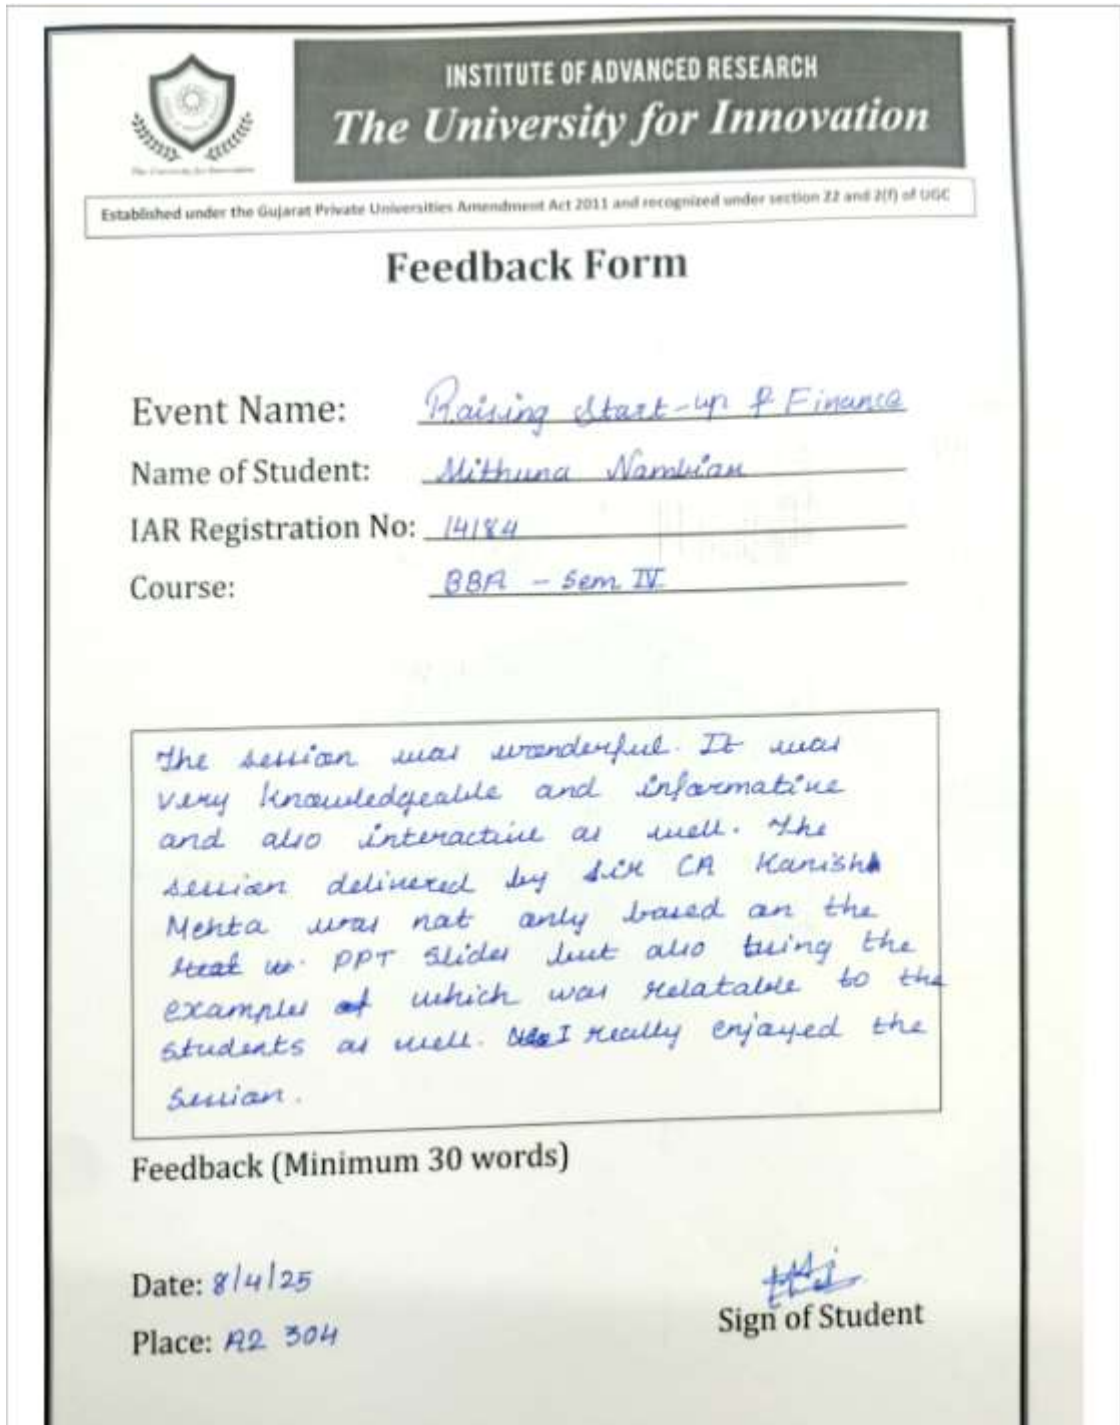 INSTITUTE OF ADVANCED RESEARCH
The University for Innovation
The University for Innovation
Established under the Gujarat Private Universities Amendment Act 2011 and recognized under section 22 and 2(f) of UGC
Feedback Form
Event Name: Raising Start-up & Finance
Name of Student: Mithuna Nambiar
IAR Registration No: 14184
Course: BBA - Sem IV
The session was wonderful. It was
very knowledgeable and informative
and also interactive as well. The
session delivered by sir CA Kanisha
Mehta was not only based on the
PPT slides but also the
examples which was relatable to the
students as well. I really enjoyed the
session.
Feedback (Minimum 30 words)
Date: 8/4/25
Place: A2 304
Sign of Student